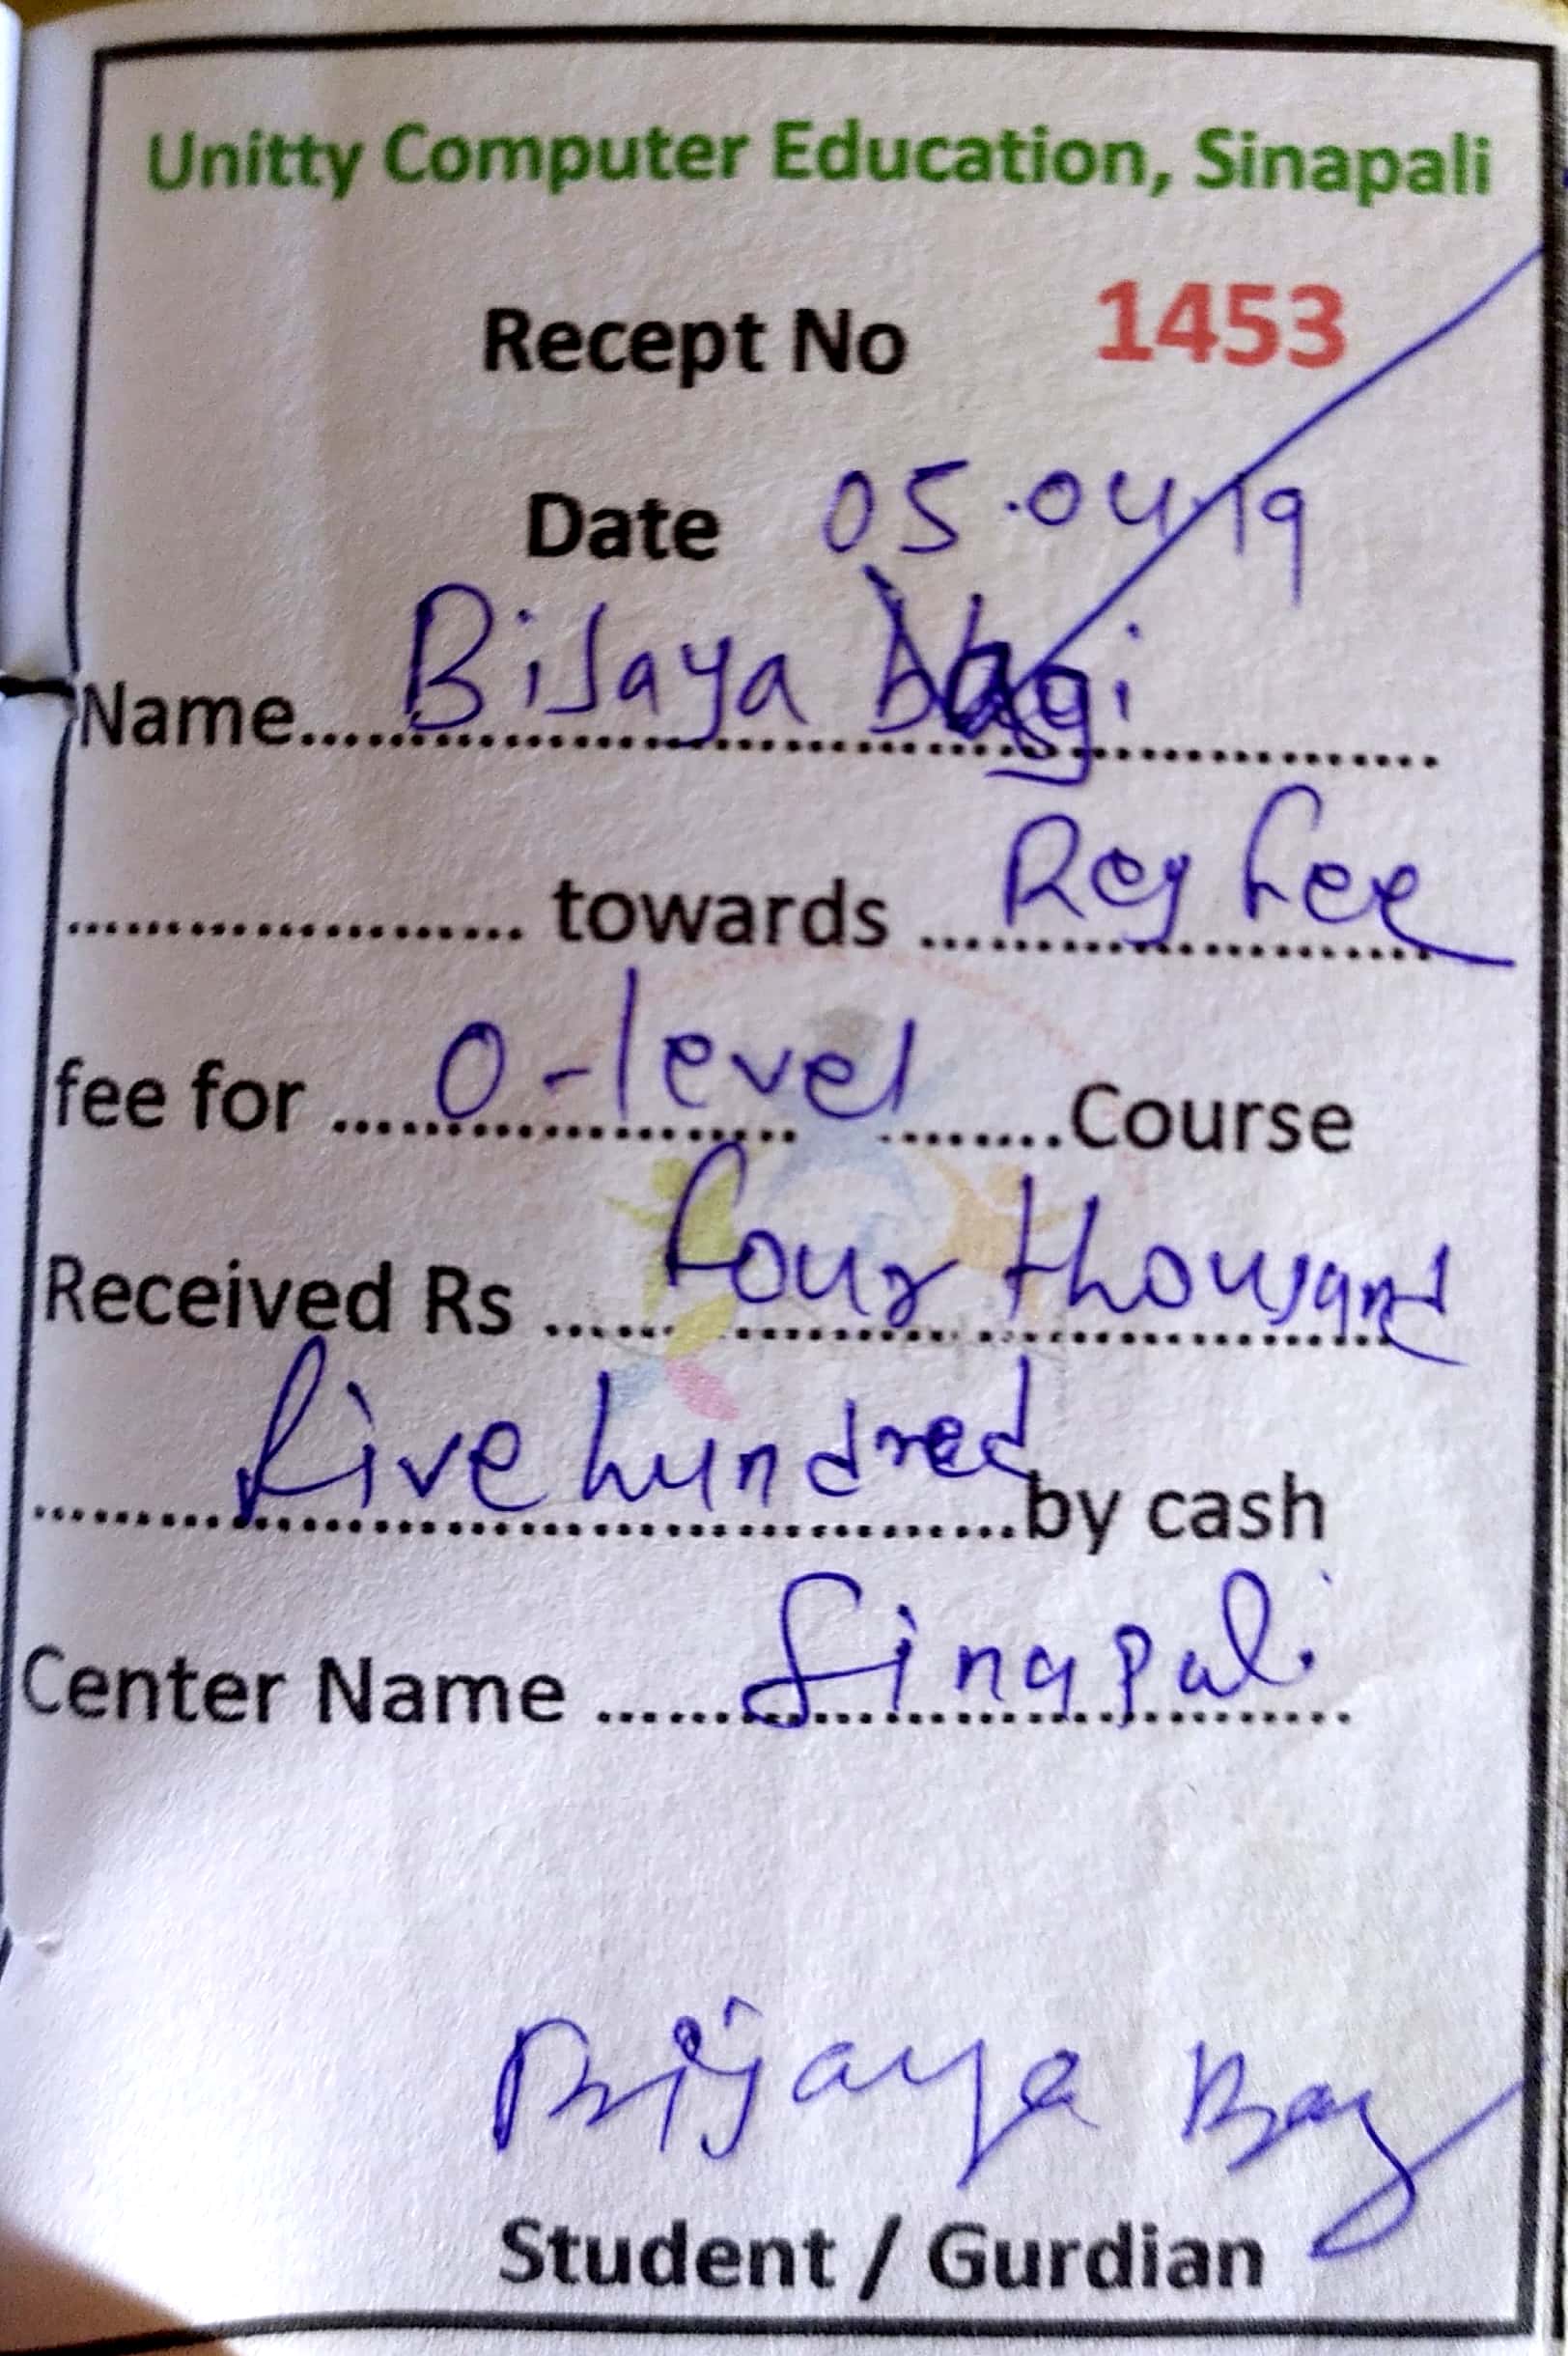 Unitty Computer Education, Sinapali
Recept No 1453
Date 05.04.19
Name.......Bijaya bagi.......
............ towards ...Reg fee...
fee for ....O-level........Course
Received Rs ......four thousand
......five hundred......by cash
Center Name ......Sinapali......
Bijaya Bag
Student / Gurdian